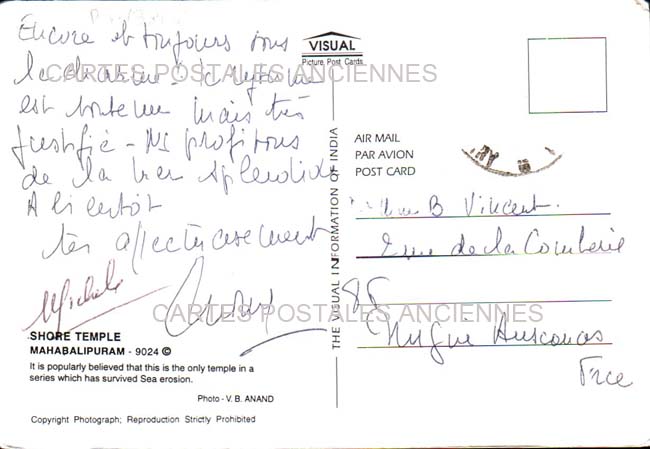 Encore et toujours sous
le charme - Le rythme
est soutenu mais très
justifié - Ns profitons
de la mer splendide
A bientôt
très affectueusement
Michèle
VISUAL
Picture Post Cards
CARTES POSTALES ANCIENNES
AIR MAIL
PAR AVION
POST CARD
THE VISUAL INFORMATION OF INDIA
B Vincent.
de la Comberie
85
CARTES POSTALES ANCIENNES
Frce
SHORE TEMPLE
MAHABALIPURAM - 9024 ©
It is popularly believed that this is the only temple in a
series which has survived Sea erosion.
Photo - V. B. ANAND
Copyright Photograph; Reproduction Strictly Prohibited